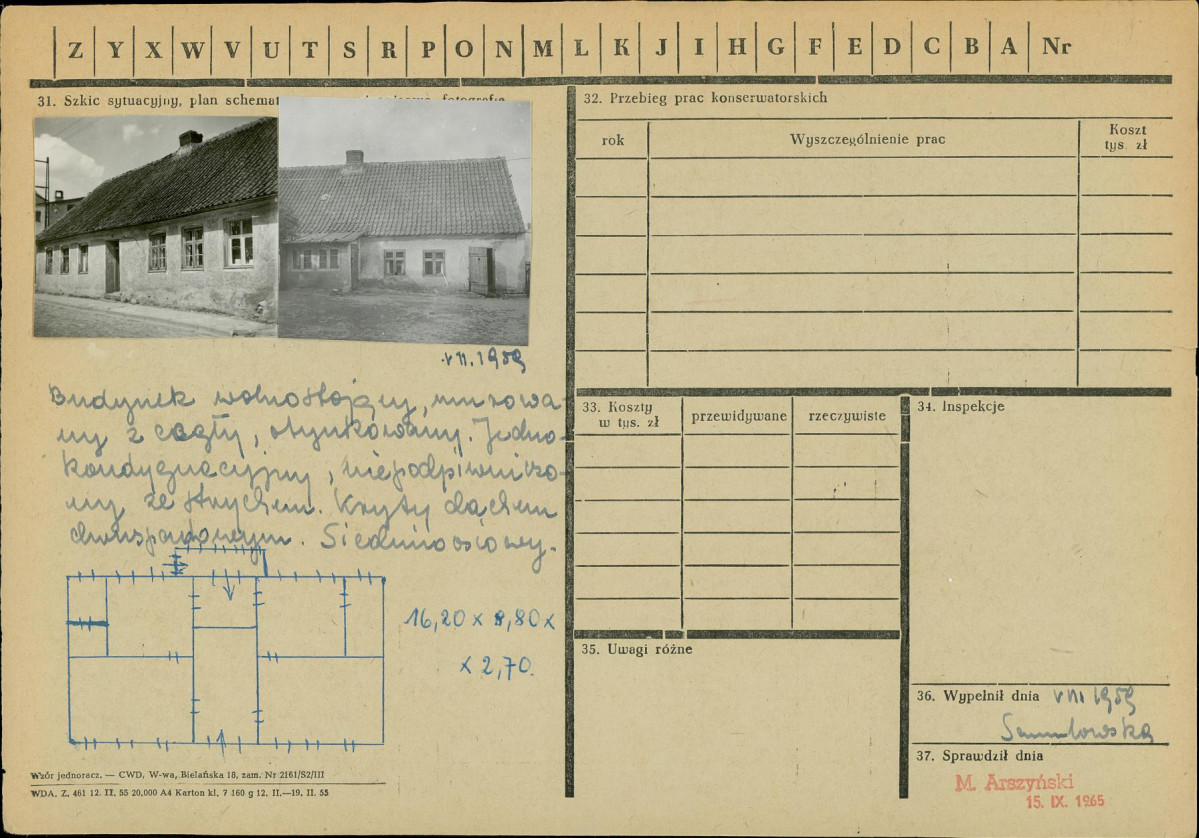 Z Y X W V U T S R P O N M Ł K J I H G F E D C B A Nr
31. Szkic sytuacyjny, plan schemat fotografia
VII. 1959
Budynek wolnostojący, murowa-
ny z cegły, otynkowany. Jedno-
kondygnacyjny, niepodpiwniczo-
ny ze strychem. Kryty dachem
dwuspadowym. Siedmioosiowy.
16,20 x 8,80 x
x 2,70.
Wzór jednoracz. — CWD, W-wa, Bielańska 18, zam. Nr 2161/S2/III
WDA. Z. 461 12. II. 55 20,000 A4 Karton kl. 7 160 g 12. II.—19. II. 55
32. Przebieg prac konserwatorskich
rok Wyszczególnienie prac Koszt
tys. zł
33. Koszty
w tys. zł przewidywane rzeczywiste
34. Inspekcje
35. Uwagi różne
36. Wypełnił dnia VII 1959
37. Sprawdził dnia
M. Arszyński
15. IX. 1965